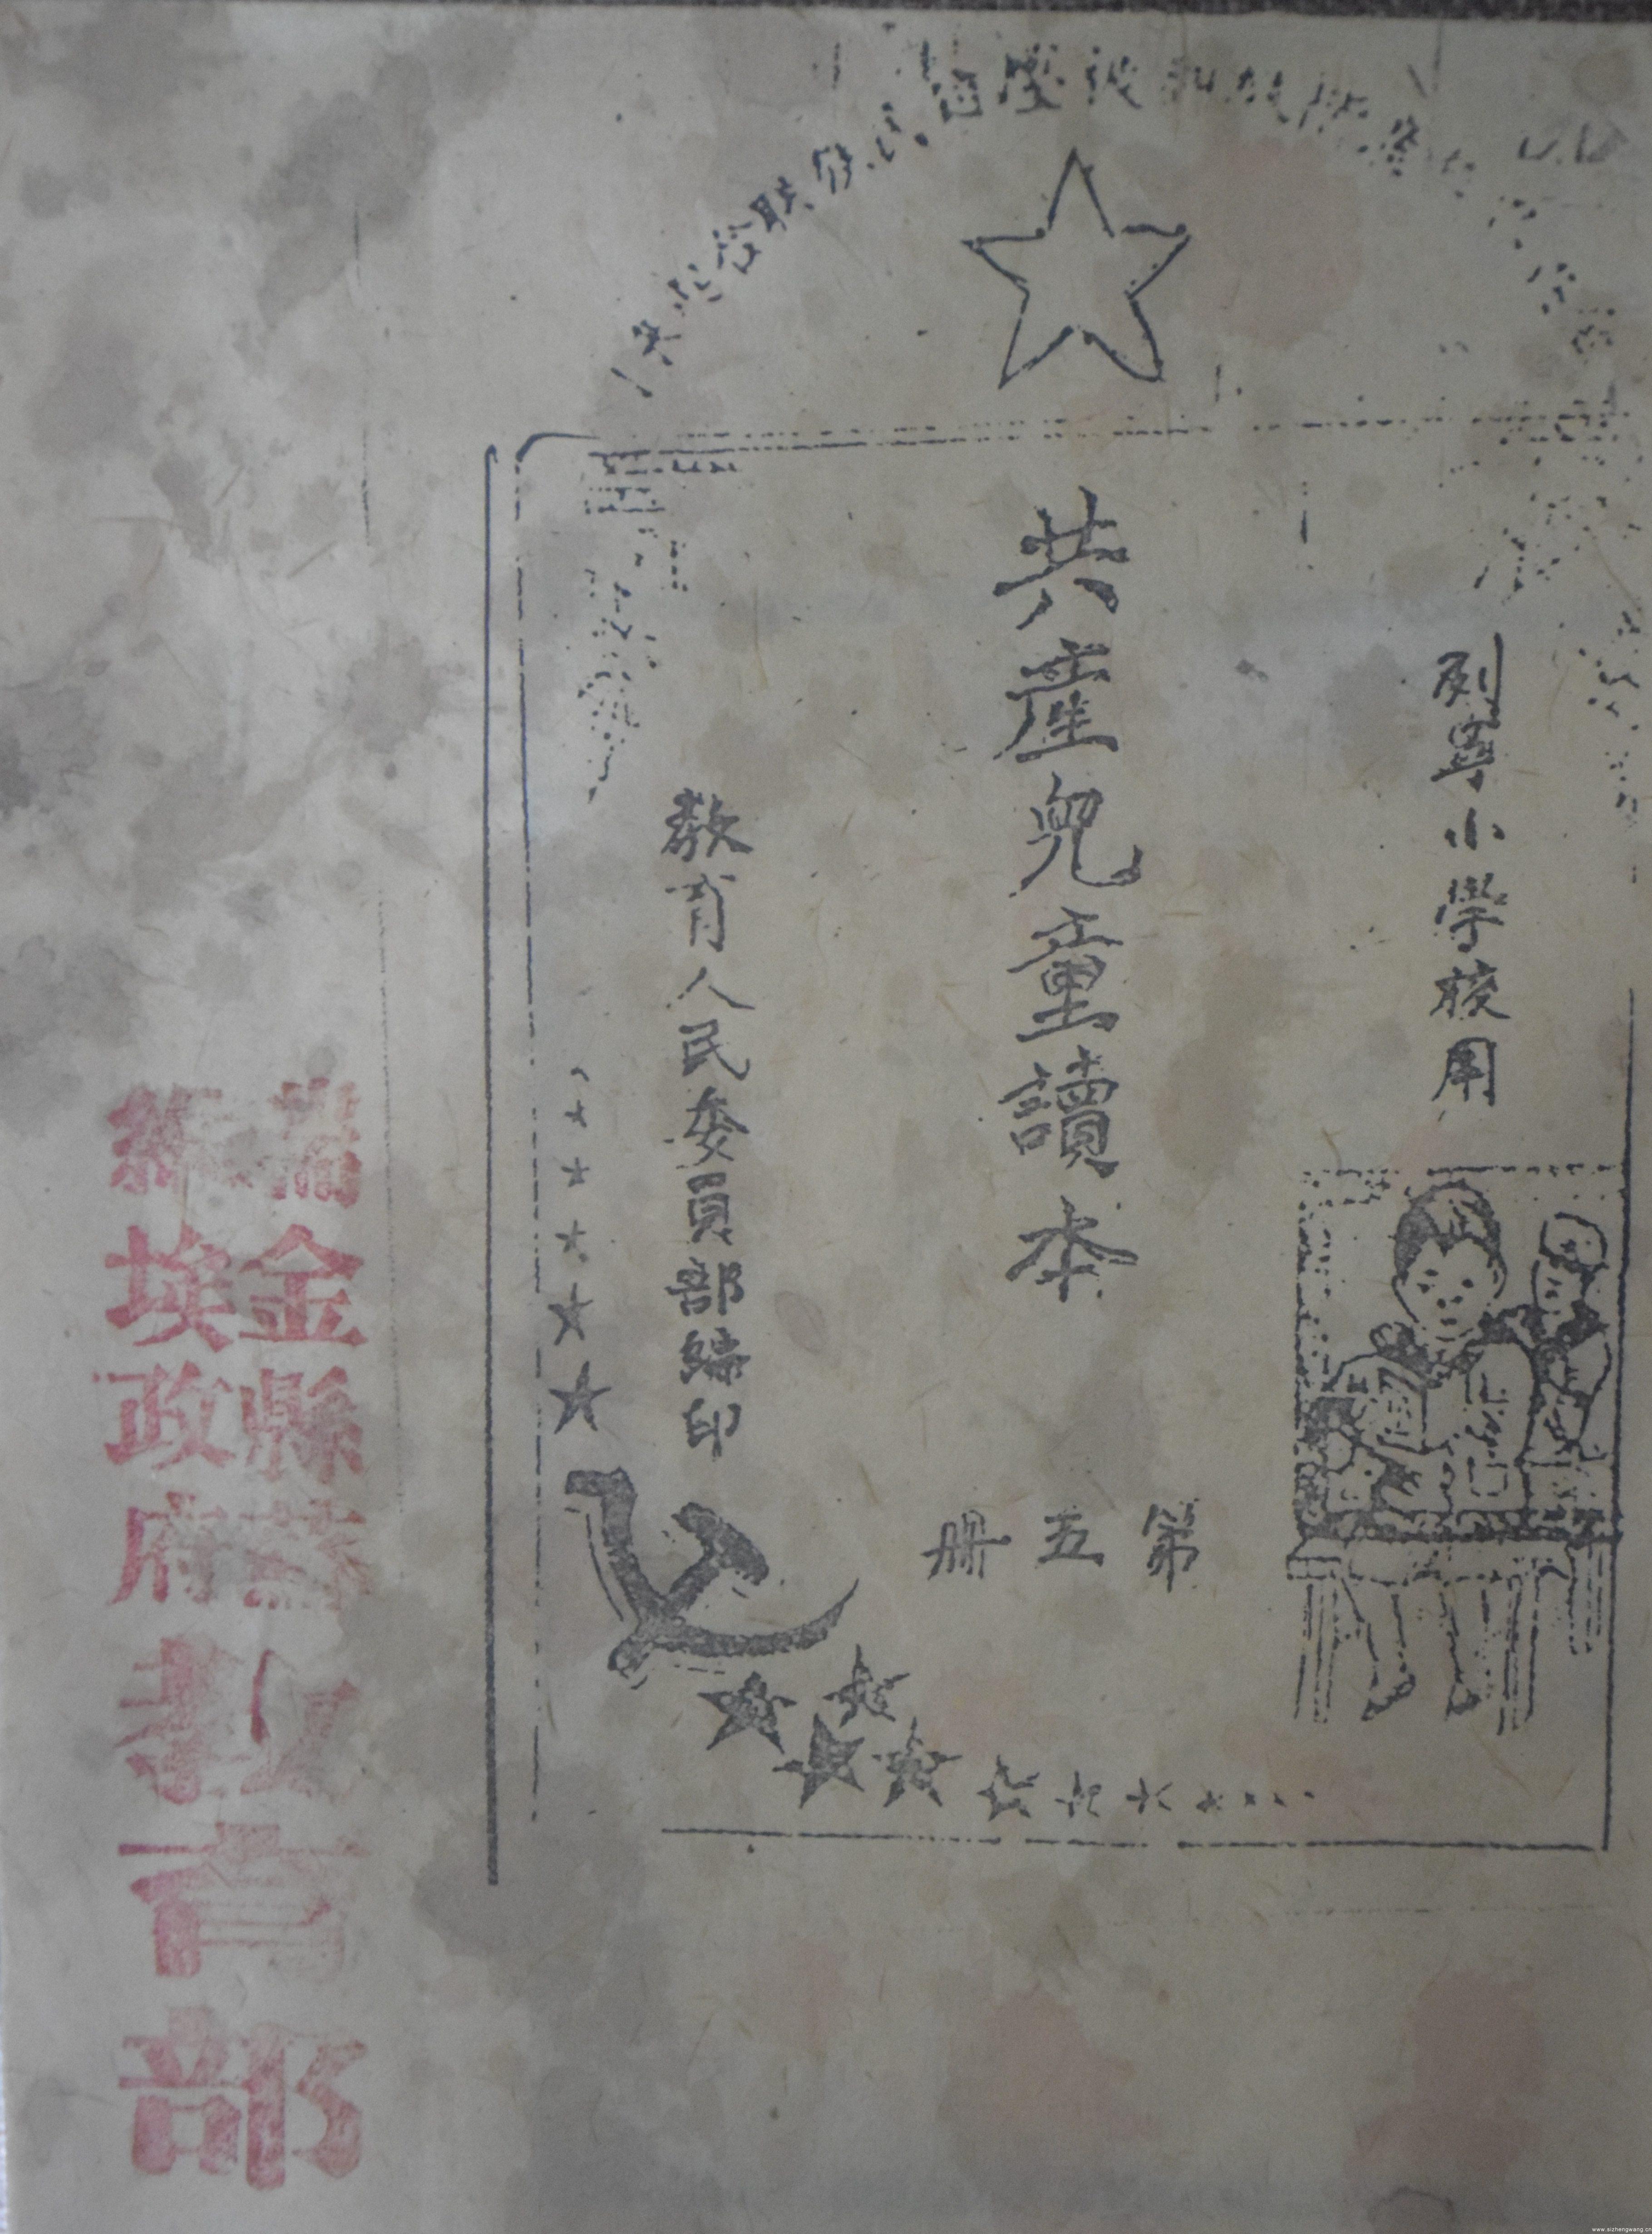 被壓迫民族聯合起來
列寧小學校用
共產兒童讀本
第五冊
教育人民委員部編印
瑞金縣蘇
維埃政府
教育部
www.sizhengwang.cn